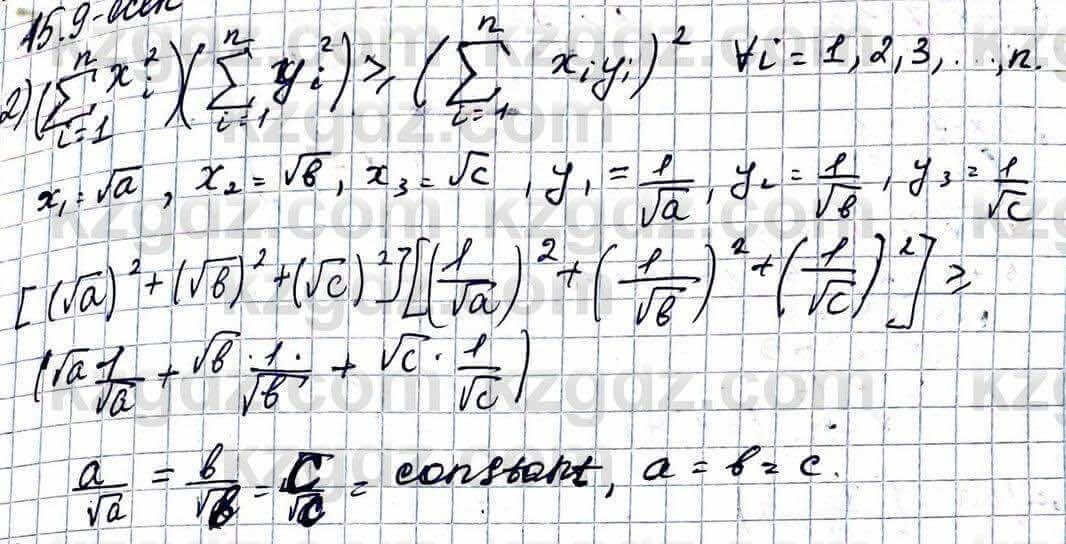 15.9-есеп
2) (∑ⁿᵢ₌₁ xᵢ²)(∑ⁿᵢ₌₁ yᵢ²) ≥ (∑ⁿᵢ₌₁ xᵢyᵢ)² ∀i = 1, 2, 3, ..., n.
x₁ = √a, x₂ = √b, x₃ = √c, y₁ = 1/√a, y₂ = 1/√b, y₃ = 1/√c
[(√a)² + (√b)² + (√c)²][(1/√a)² + (1/√b)² + (1/√c)²] ≥
(√a 1/√a + √b · 1/√b + √c · 1/√c)
a/√a = b/√b = c/√c = constant, a = b = c.
kzgdz.com